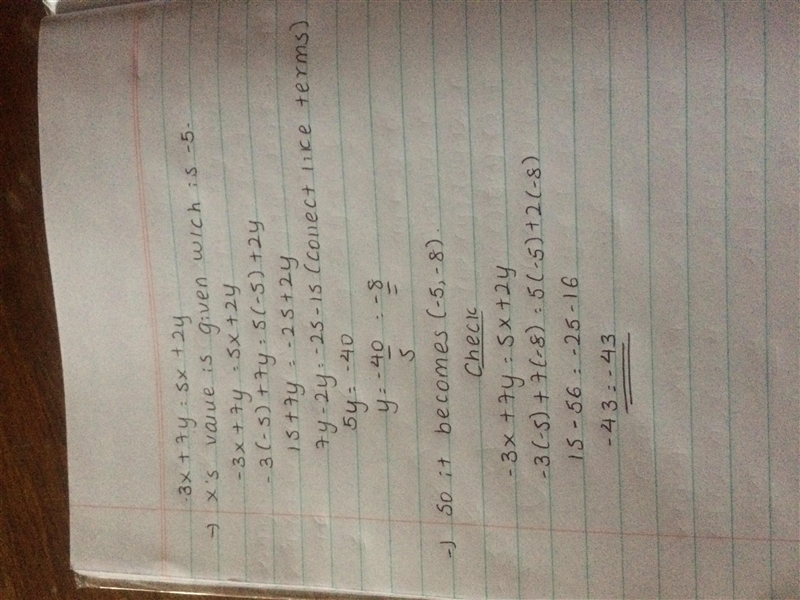 -3x + 7y = 5x + 2y
→ x's value is given wich is -5.
-3x + 7y = 5x + 2y
-3(-5) + 7y = 5(-5) + 2y
15 + 7y = -25 + 2y
7y - 2y = -25 - 15 (collect like terms)
5y = -40
y = -40 = -8
5
→ so it becomes (-5, -8).
Check
-3x + 7y = 5x + 2y
-3(-5) + 7(-8) = 5(-5) + 2(-8)
15 - 56 = -25 - 16
-43 = -43